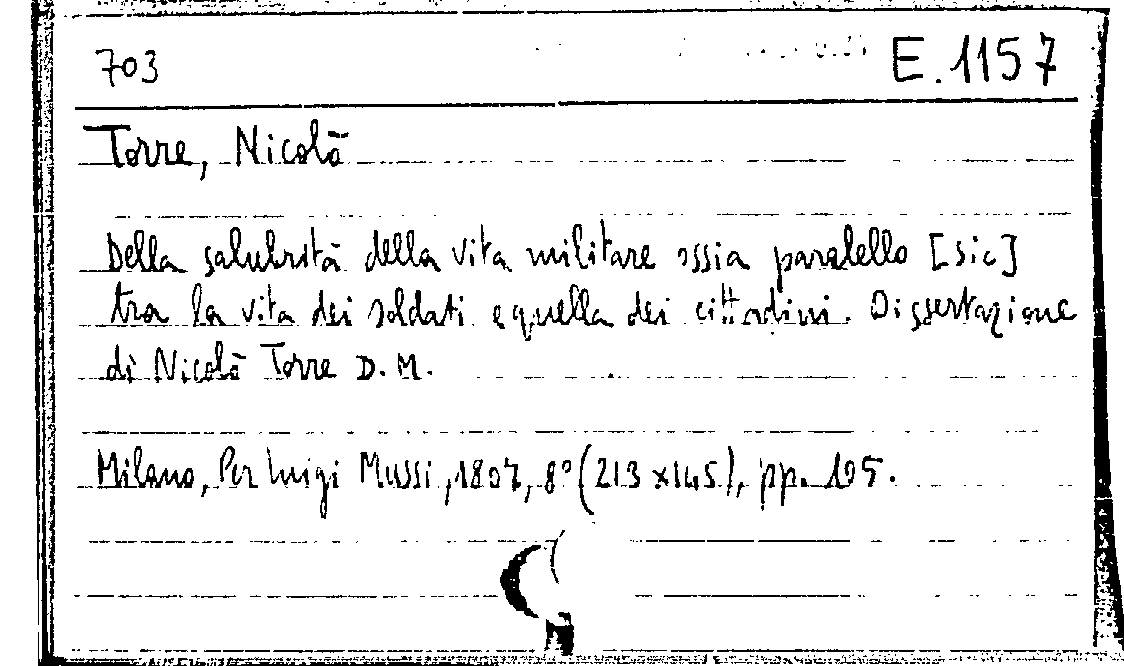 703 E.1157
Torre, Nicolà
Della salubrità della vita militare ossia paralello [sic]
tra la vita dei soldati e quella dei cittadini. Dissertazione
di Nicolà Torre D.M.
Milano, Per Luigi Mussi, 1807, 8° (213x145), pp. 195.